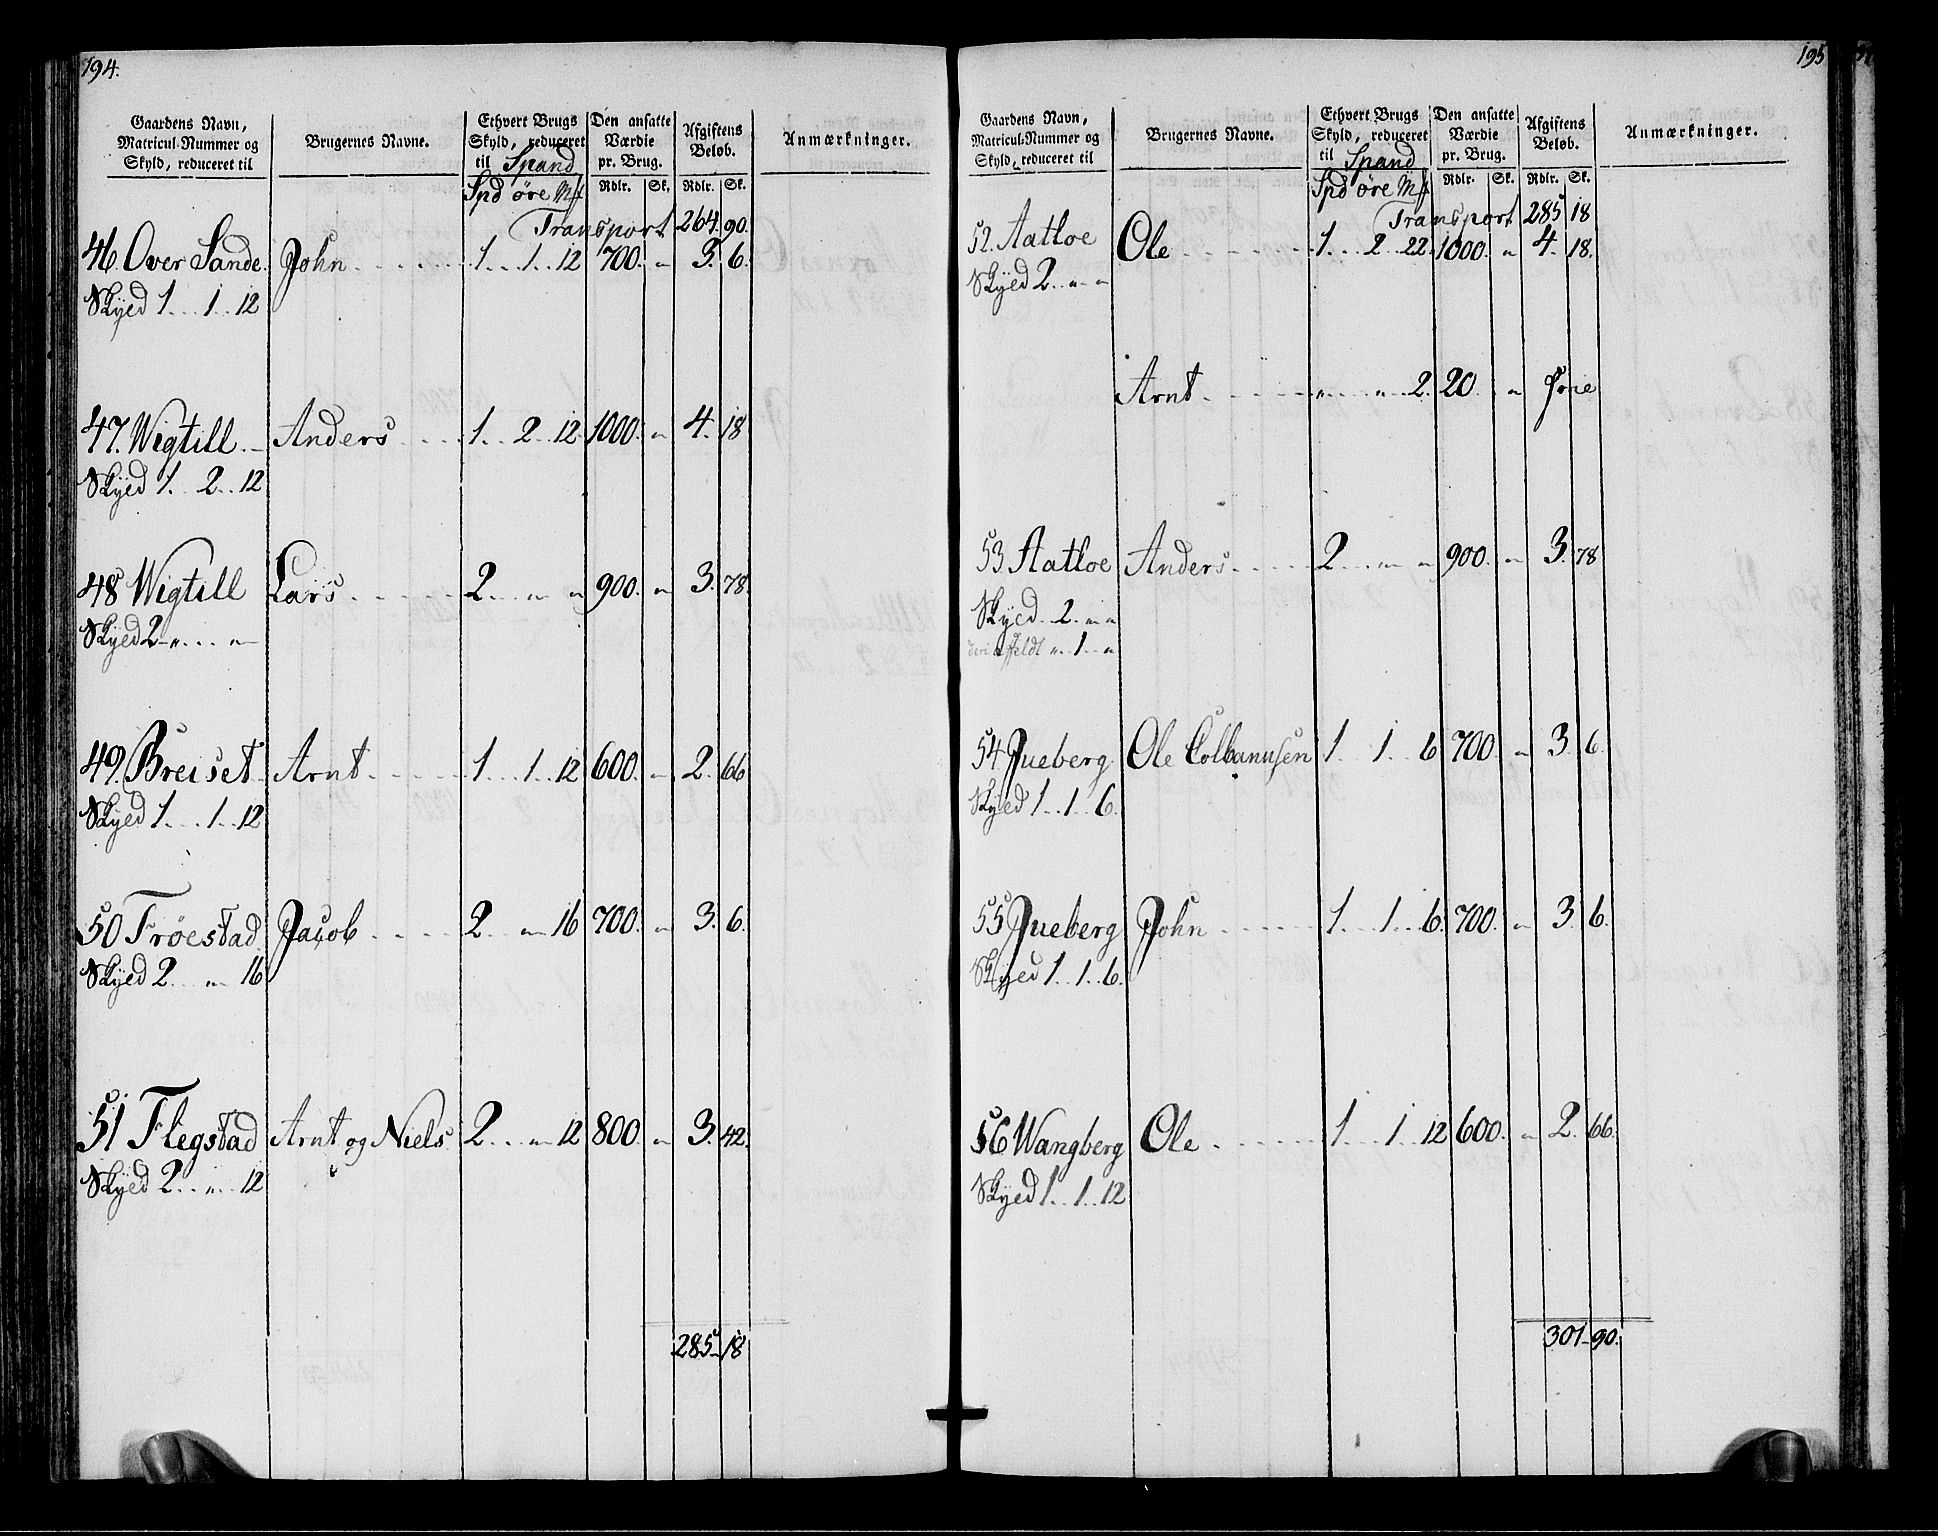 194.
Gaardens Navn, Matricul-Nummer og Skyld, reduceret til | Brugernes Navne. | Ethvert Brugs Skyld, reduceret til Spand | Den ansatte Værdie pr. Brug. | Afgiftens Beløb. | Anmærkninger.
Spd øre Mk | Rdlr. | Sk. | Rdlr. | Sk.
Transport 264. 90.
46. Over Sande. John 1. 1. 12 700. " 3. 6.
Skyed 1. 1. 12
47. Wigtill. Anders 1. 2. 12 1000. " 4. 18
Skyed 1. 2. 12
48 Wigtill Lars 2. " " 900. " 3. 78.
Skyed 2 " "
49. Breiset Arnt 1. 1. 12 600. " 2. 66
Skyed 1. 1. 12
50 Trøestad Jacob 2. " 16 700. " 3. 6.
Skyed 2. " 16
51 Flegstad Arnt og Niels 2. " 12 800. " 3. 42.
Skyed 2. " 12
285. 18
195
Gaardens Navn, Matricul-Nummer og Skyld, reduceret til | Brugernes Navne. | Ethvert Brugs Skyld, reduceret til Spand | Den ansatte Værdie pr. Brug. | Afgiftens Beløb. | Anmærkninger.
Spd øre Mk | Rdlr. | Sk. | Rdlr. | Sk.
Transport 285 18
52. Aatloe Ole 1. 2. 22. 1000. " 4. 18.
Skyed 2. " "
Arnt " " 2. 20. "
53 Aatloe Anders 2 " " 900. " 3. 78
Skyed 2. " "
" 1. "
54 Jueberg Ole Colbanusen 1. 1. 6 700 " 3. 6.
Skyed 1. 1. 6.
55 Jueberg John 1. 1. 6. 700. " 3. 6.
Skyed 1. 1. 6.
56 Wangberg Ole 1. 1. 12 600. " 2. 66.
Skyed 1. 1. 12
301. 90.